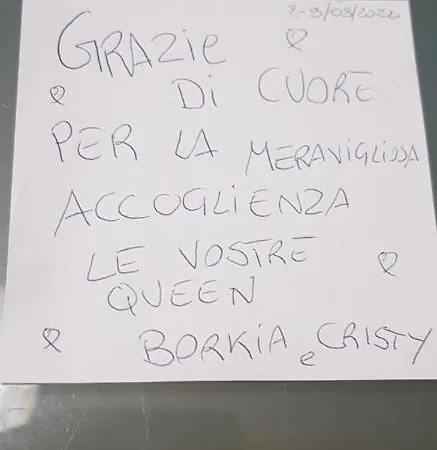 8-9/03/2022
GRAZIE
DI CUORE
PER LA MERAVIGLIOSA
ACCOGLIENZA
LE VOSTRE
QUEEN
BORKIA e CRISTY